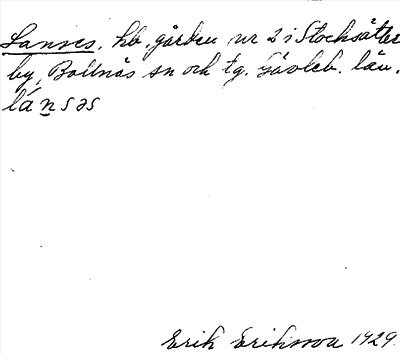 Lanses, hb. gården nr 2 i Stocksätter
by, Bollnäs sn och tg. Gävleb. län.
lánsəs
Erik Eriksson 1929.